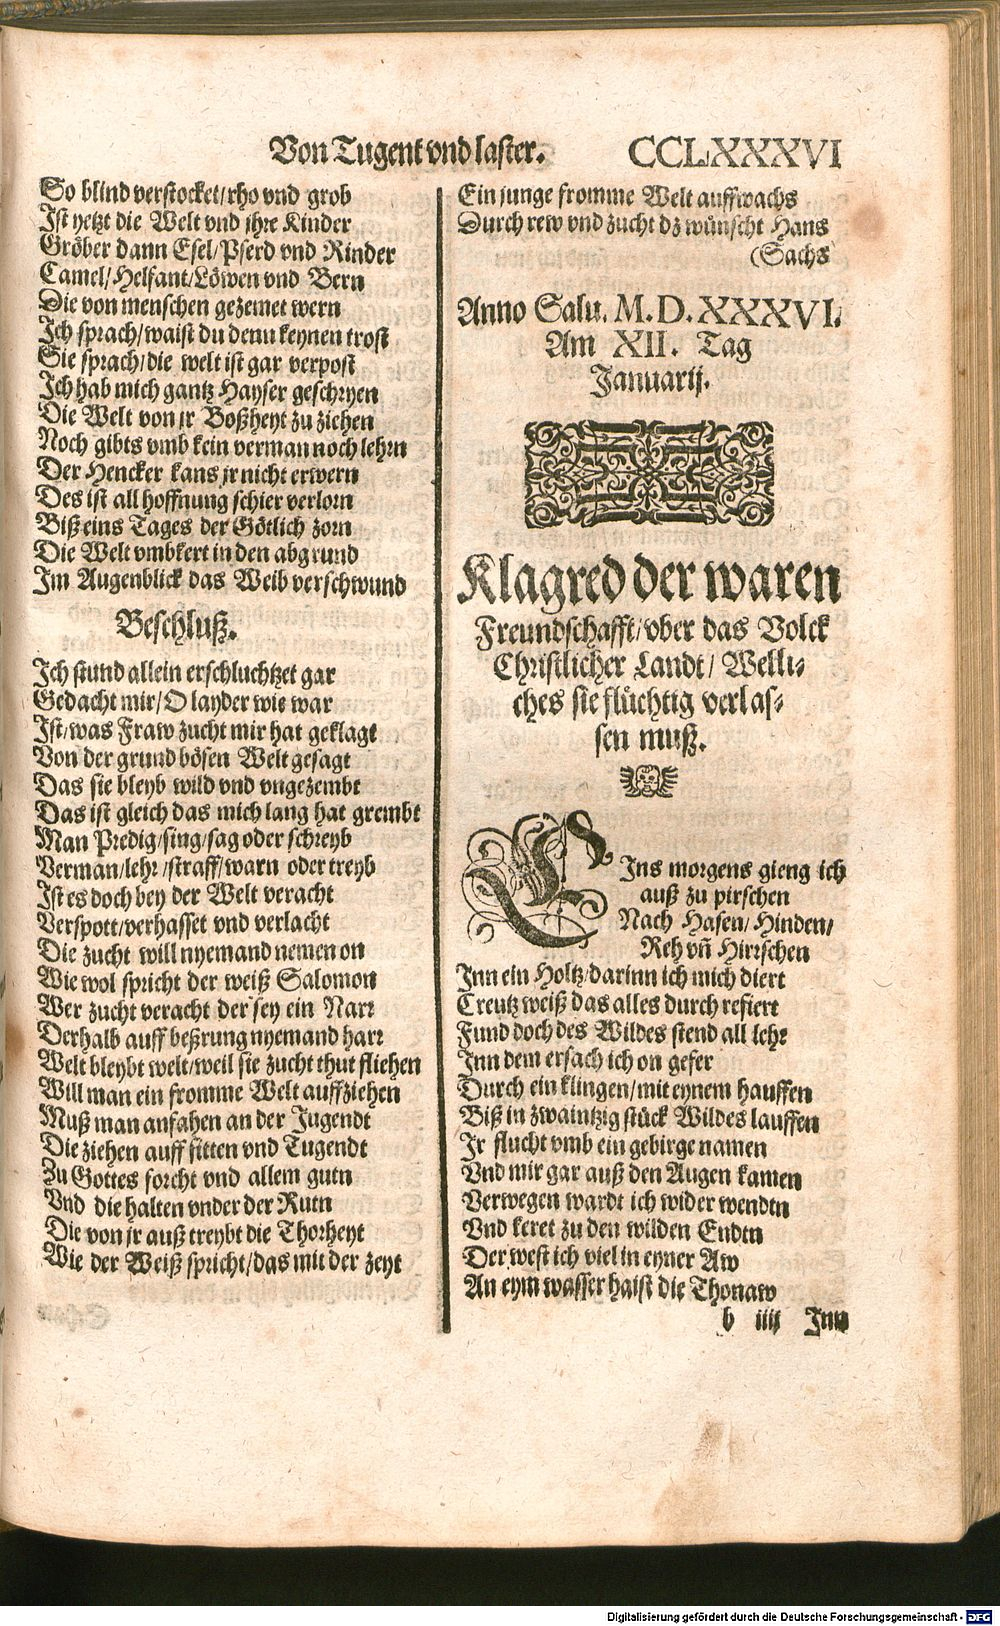 Von Tugent vnd laster. CCLXXXVI
So blind verstocket/rho vnd grob
Ist yetzt die Welt vnd jhre Kinder
Gröber dann Esel/Pferd vnd Rinder
Camel/Helfant/Löwen vnd Bern
Die von menschen gezemet wern
Ich sprach/waist du denn keynen trost
Sie sprach/die welt ist gar verpost
Ich hab mich gantz Hayser geschryen
Die Welt von jr Boßheyt zu ziehen
Noch gibts vmb kein verman noch lehrn
Der Hencker kans jr nicht erwern
Des ist all hoffnung schier verlorn
Biß eins Tages der Götlich zorn
Die Welt vmbkert in den abgrund
Im Augenblick das Weib verschwund
Beschluß.
Ich stund allein erschluchtzet gar
Gedacht mir/O layder wie war
Ist/was Fraw zucht mir hat geklagt
Von der grund bösen Welt gesagt
Das sie bleyb wild vnd vngezembt
Das ist gleich das mich lang hat grembt
Man Predig/sing/sag oder schreyb
Verman/lehr/straff/warn oder treyb
Ist es doch bey der Welt veracht
Verspott/verhasset vnd verlacht
Die zucht will nyemand nemen on
Wie wol spricht der weiß Salomon
Wer zucht veracht der sey ein Narr
Derhalb auff beßrung nyemand harr
Welt bleybt welt/weil sie zucht thut fliehen
Will man ein fromme Welt auffziehen
Muß man anfahen an der Jugendt
Die ziehen auff sitten vnd Tugendt
Zu Gottes forcht vnd allem gutn
Vnd die halten vnder der Rutn
Die von jr auß treybt die Thorheyt
Wie der Weiß spricht/das mit der zeyt
Ein junge fromme Welt auffwachs
Durch rew vnd zucht dz wünscht Hans
(Sachs
Anno Salu. M.D.XXXVI.
Am XII. Tag
Januarij.
Klagred der waren
Freundschafft/vber das Volck
Christlicher Landt/Welli-
ches sie flüchtig verlas-
sen muß.
EIns morgens gieng ich
auß zu pirschen
Nach Hasen/Hinden/
Reh vñ Hirrschen
Inn ein Holtz/darinn ich mich diert
Creutz weiß das alles durch refiert
Fund doch des Wildes stend all lehr
Inn dem ersach ich on gefer
Durch ein klingen/mit eynem hauffen
Biß in zwaintzig stück Wildes lauffen
Ir flucht vmb ein gebirge namen
Vnd mir gar auß den Augen kamen
Verwegen wardt ich wider wendtn
Vnd keret zu den wilden Endtn
Der west ich viel in eyner Aw
An eym wasser haist die Thonaw
b iiij Inn
Digitalisierung gefördert durch die Deutsche Forschungsgemeinschaft - DFG